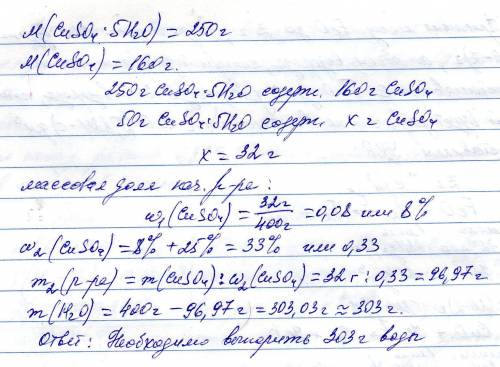 M(CuSO₄·5H₂O) = 250г
M(CuSO₄) = 160г.
250г CuSO₄·5H₂O содерж. 160г CuSO₄
50г CuSO₄·5H₂O содерж. x г CuSO₄
x = 32 г
массовая доля нач. р-ра :
ω₁(CuSO₄) = 32г/400г = 0,08 или 8%
ω₂(CuSO₄) = 8% + 25% = 33% или 0,33
m₂(р-ра) = m(CuSO₄) : ω₂(CuSO₄) = 32г : 0,33 = 96,97г
m(H₂O) = 400г − 96,97г = 303,03г ≈ 303 г.
Ответ: Необходимо выпарить 303г воды